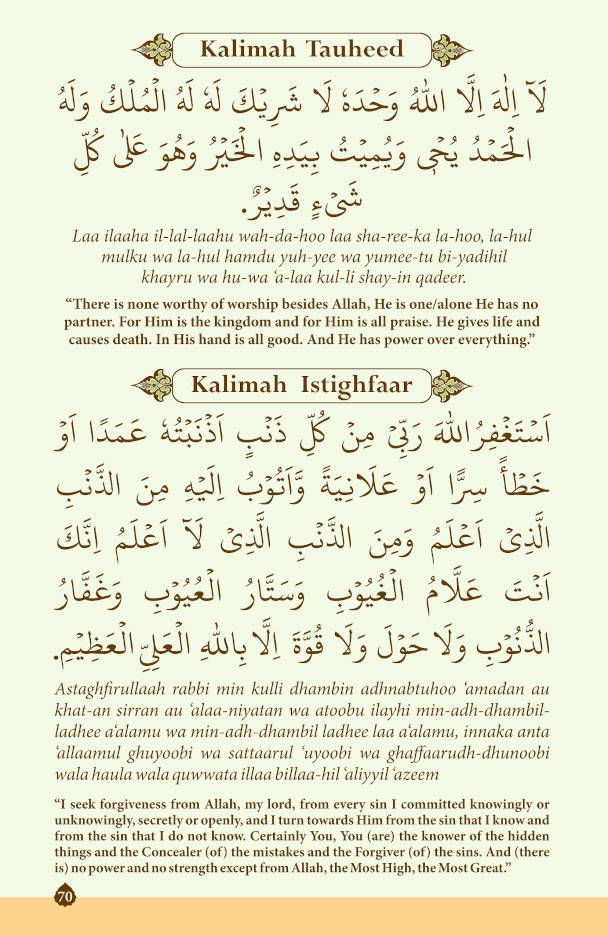 Kalimah Tauheed
لَآ اِلٰهَ اِلَّا اللهُ وَحْدَهٗ لَا شَرِيْكَ لَهٗ لَهُ الْمُلْكُ وَلَهُ
الْحَمْدُ يُحْيٖ وَيُمِيْتُ بِيَدِهِ الْخَيْرُ وَهُوَ عَلٰى كُلِّ
شَىْءٍ قَدِيْرٌ.
Laa ilaaha il-lal-laahu wah-da-hoo laa sha-ree-ka la-hoo, la-hul
mulku wa la-hul hamdu yuh-yee wa yumee-tu bi-yadihil
khayru wa hu-wa ‘a-laa kul-li shay-in qadeer.
“There is none worthy of worship besides Allah, He is one/alone He has no
partner. For Him is the kingdom and for Him is all praise. He gives life and
causes death. In His hand is all good. And He has power over everything.”
Kalimah Istighfaar
اَسْتَغْفِرُ اللهَ رَبِّىْ مِنْ كُلِّ ذَنْبٍ اَذْنَبْتُهٗ عَمَدًا اَوْ
خَطْأً سِرًّا اَوْ عَلَانِيَةً وَّاَتُوْبُ اِلَيْهِ مِنَ الذَّنْبِ
الَّذِىْ اَعْلَمُ وَمِنَ الذَّنْبِ الَّذِىْ لَآ اَعْلَمُ اِنَّكَ
اَنْتَ عَلَّامُ الْغُيُوْبِ وَسَتَّارُ الْعُيُوْبِ وَغَفَّارُ
الذُّنُوْبِ وَلَا حَوْلَ وَلَا قُوَّةَ اِلَّا بِاللهِ الْعَلِىِّ الْعَظِيْمِ.
Astaghfirullaah rabbi min kulli dhambin adhnabtuhoo ‘amadan au
khat-an sirran au ‘alaa-niyatan wa atoobu ilayhi min-adh-dhambil-
ladhee a‘alamu wa min-adh-dhambil ladhee laa a‘alamu, innaka anta
‘allaamul ghuyoobi wa sattaarul ‘uyoobi wa ghaffaarudh-dhunoobi
wala haula wala quwwata illaa billaa-hil ‘aliyyil ‘azeem
“I seek forgiveness from Allah, my lord, from every sin I committed knowingly or
unknowingly, secretly or openly, and I turn towards Him from the sin that I know and
from the sin that I do not know. Certainly You, You (are) the knower of the hidden
things and the Concealer (of) the mistakes and the Forgiver (of) the sins. And (there
is) no power and no strength except from Allah, the Most High, the Most Great.”
70